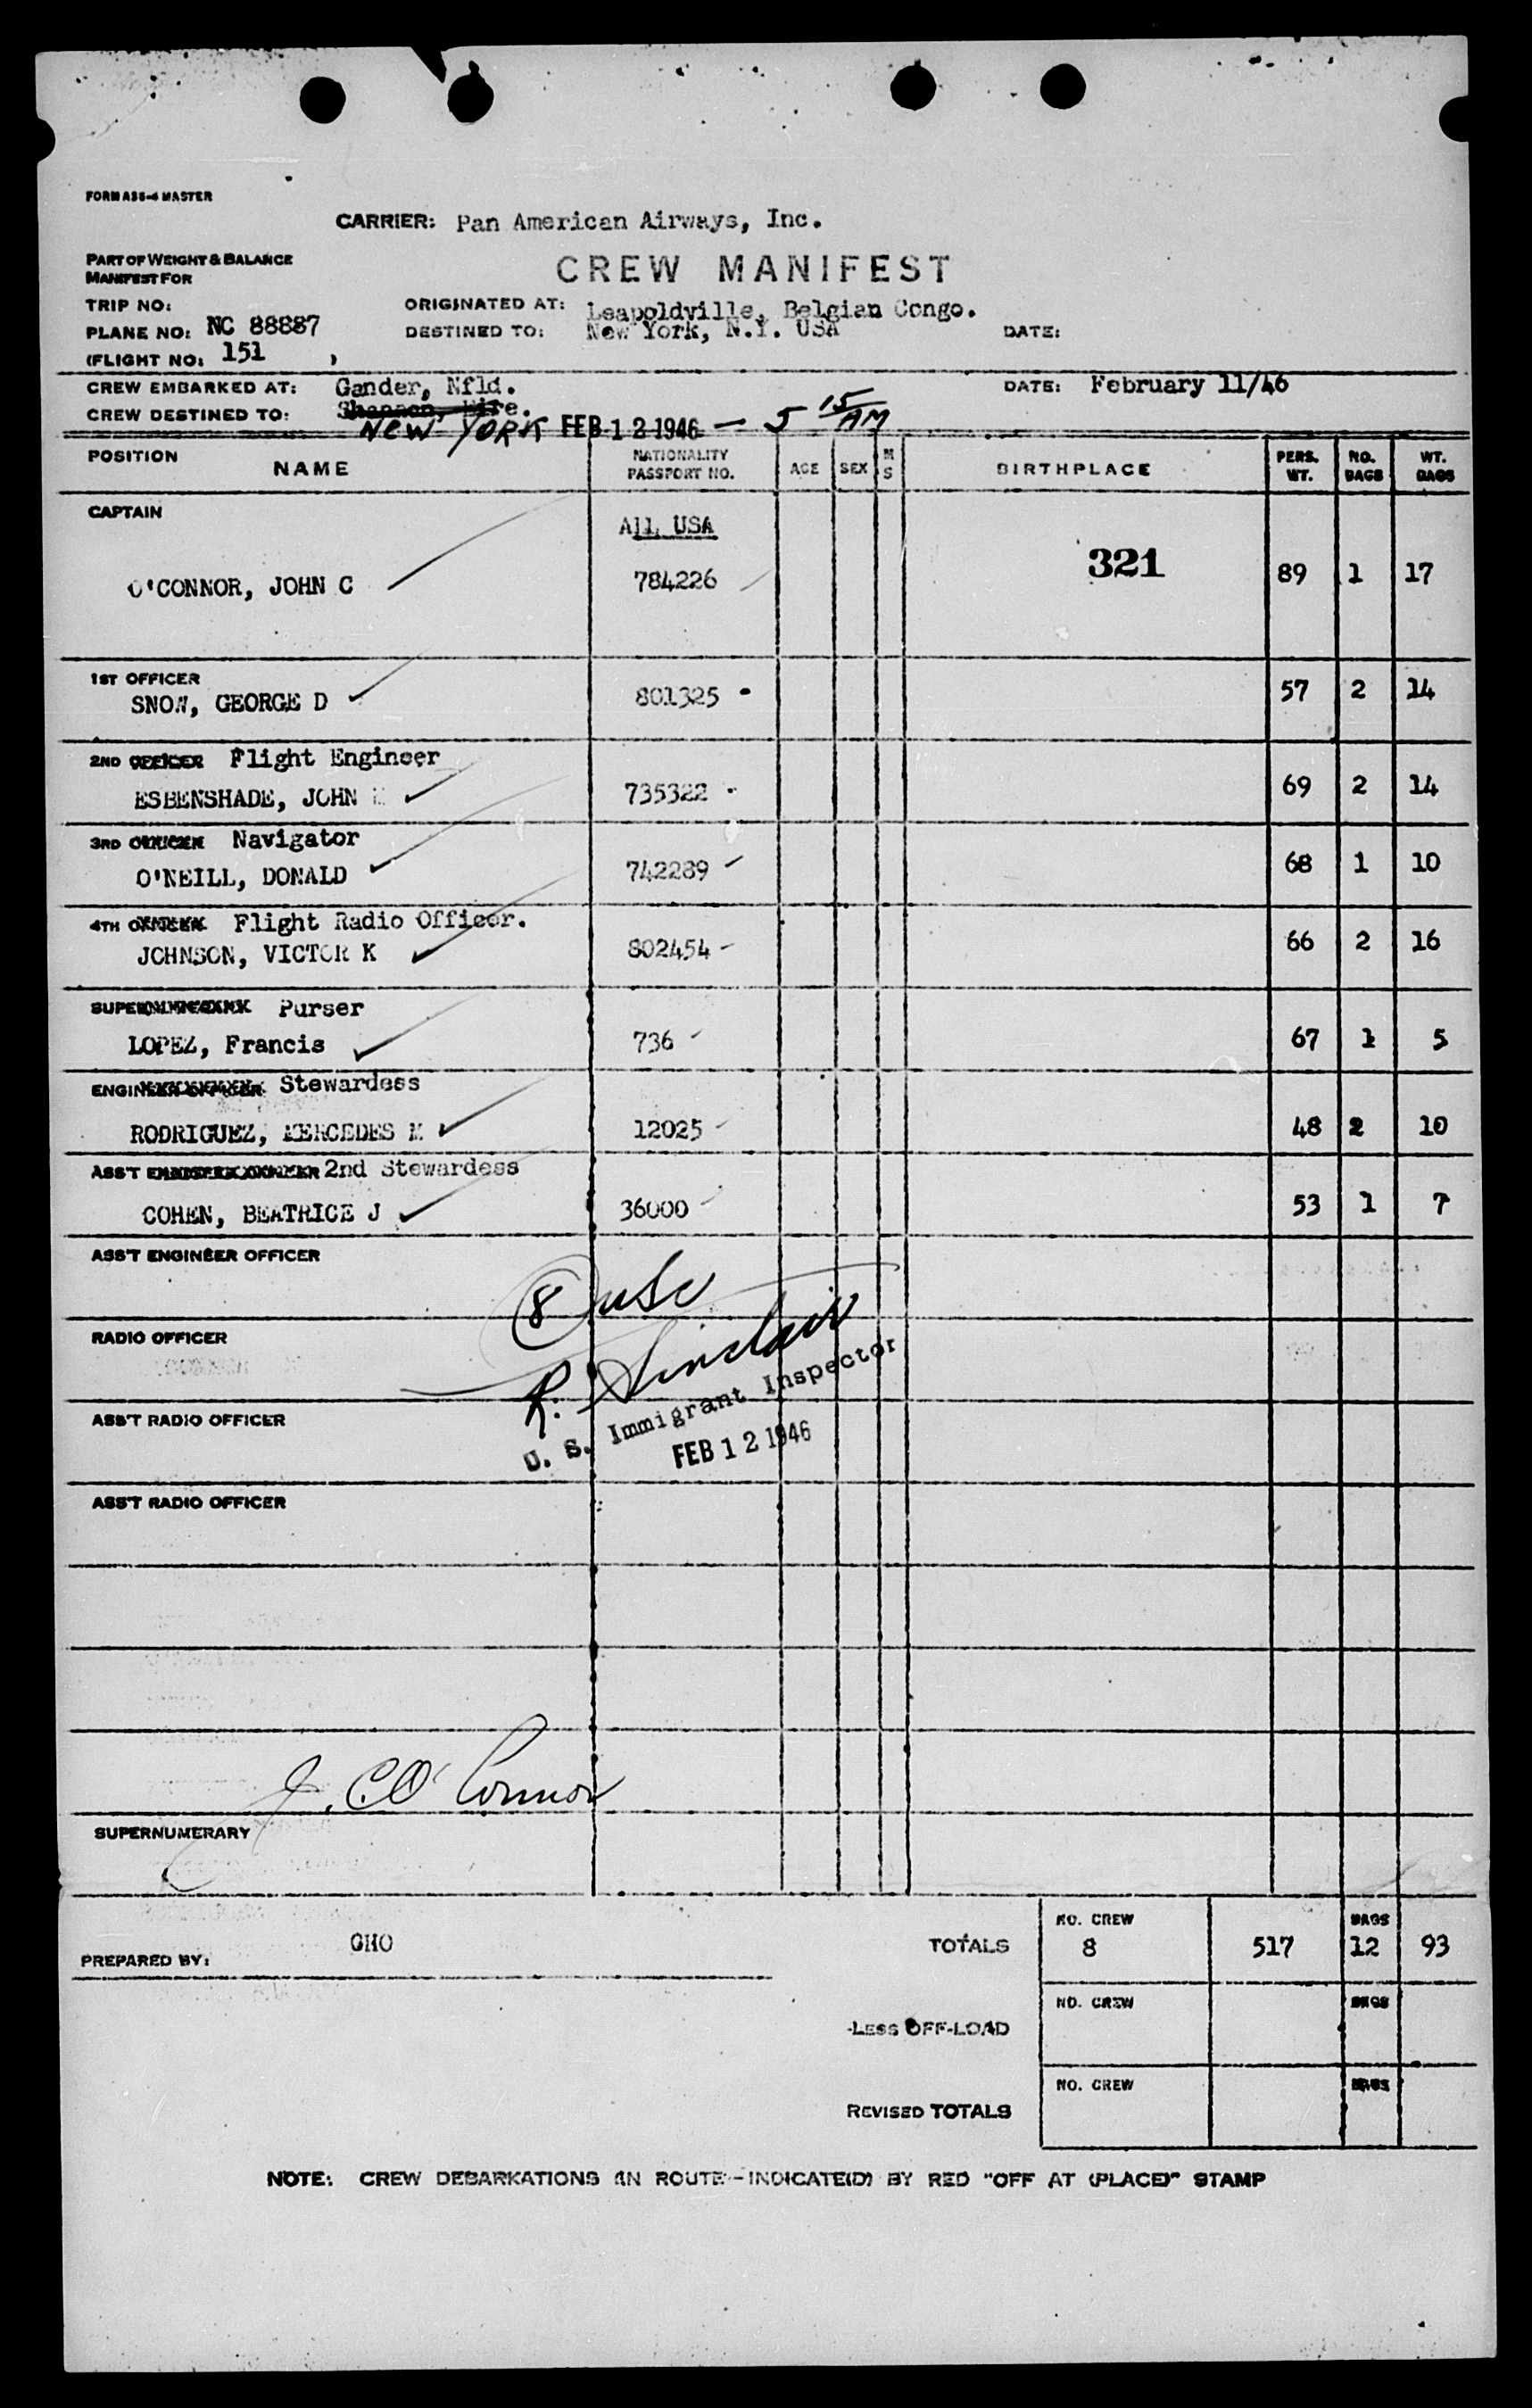 FORM ASS-4 MASTER
CARRIER: Pan American Airways, Inc.
PART OF WEIGHT & BALANCE
MANIFEST FOR
CREW MANIFEST
TRIP NO:
ORIGINATED AT: Leapoldville, Belgian Congo.
PLANE NO: NC 88887
DESTINED TO: New York, N.Y. USA
DATE:
(FLIGHT NO: 151 )
CREW EMBARKED AT: Gander, Nfld.
DATE: February 11/46
CREW DESTINED TO: Shannon, Eire.
NEW YORK FEB 12 1946 — 5 15 AM
POSITION NAME NATIONALITY PASSPORT NO. AGE SEX M S BIRTHPLACE PERS. WT. NO. BAGS WT. BAGS
CAPTAIN
All USA
321
O'CONNOR, JOHN C 784226 89 1 17
1ST OFFICER
SNOW, GEORGE D 801325 57 2 14
2ND OFFICER Flight Engineer
ESBENSHADE, JOHN 735322 69 2 14
3RD OFFICER Navigator
O'NEILL, DONALD 742289 68 1 10
4TH OFFICER Flight Radio Officer.
JOHNSON, VICTOR K 802454 66 2 16
SUPERNUMERARY Purser
LOPEZ, Francis 736 67 1 5
ENGINEER OFFICER Stewardess
RODRIGUEZ, MERCEDES M 12025 48 2 10
ASS'T ENGINEER OFFICER 2nd Stewardess
COHEN, BEATRICE J 36000 53 1 7
ASS'T ENGINEER OFFICER
8 USC
RADIO OFFICER
R. Sinclair
U. S. Immigrant Inspector
ASS'T RADIO OFFICER
FEB 12 1946
ASS'T RADIO OFFICER
J. C. O'Connor
SUPERNUMERARY
PREPARED BY: GHO
TOTALS
NO. CREW
8 517
BAGS
12 93
LESS OFF-LOAD
NO. CREW
BAGS
REVISED TOTALS
NO. CREW
BAGS
NOTE: CREW DEBARKATIONS (IN ROUTE - INDICATE(D) BY RED "OFF AT (PLACE)" STAMP